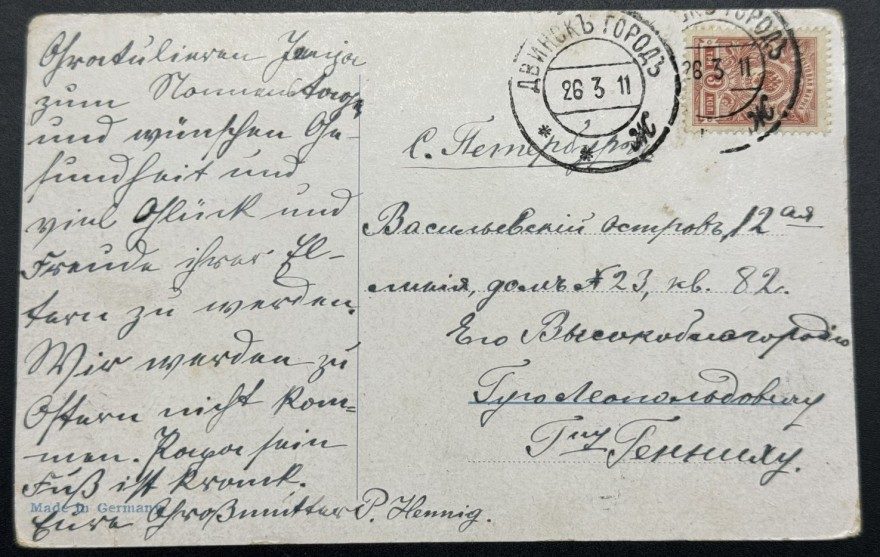 Gratulieren Jenija
zum Nammenstage
und wünschen Ge-
sundheit und
viel Glück und
Freude ihrer El-
tern zu werden.
Wir werden zu
Ostern nicht kom-
men. Papa sein
Fuß ist krank.
Eure Großmutter P. Hennig.
Made in Germany
ДВИНСКЪ ГОРОДЪ
26 3 11
Ж
26 3 11
Ж
С. Петербургъ
Васильевскій островъ, 12ая
линія, домъ № 23, кв. 82.
Его Высокоблагородію
Гуго Леопольдовичу
Гну Геннигу.